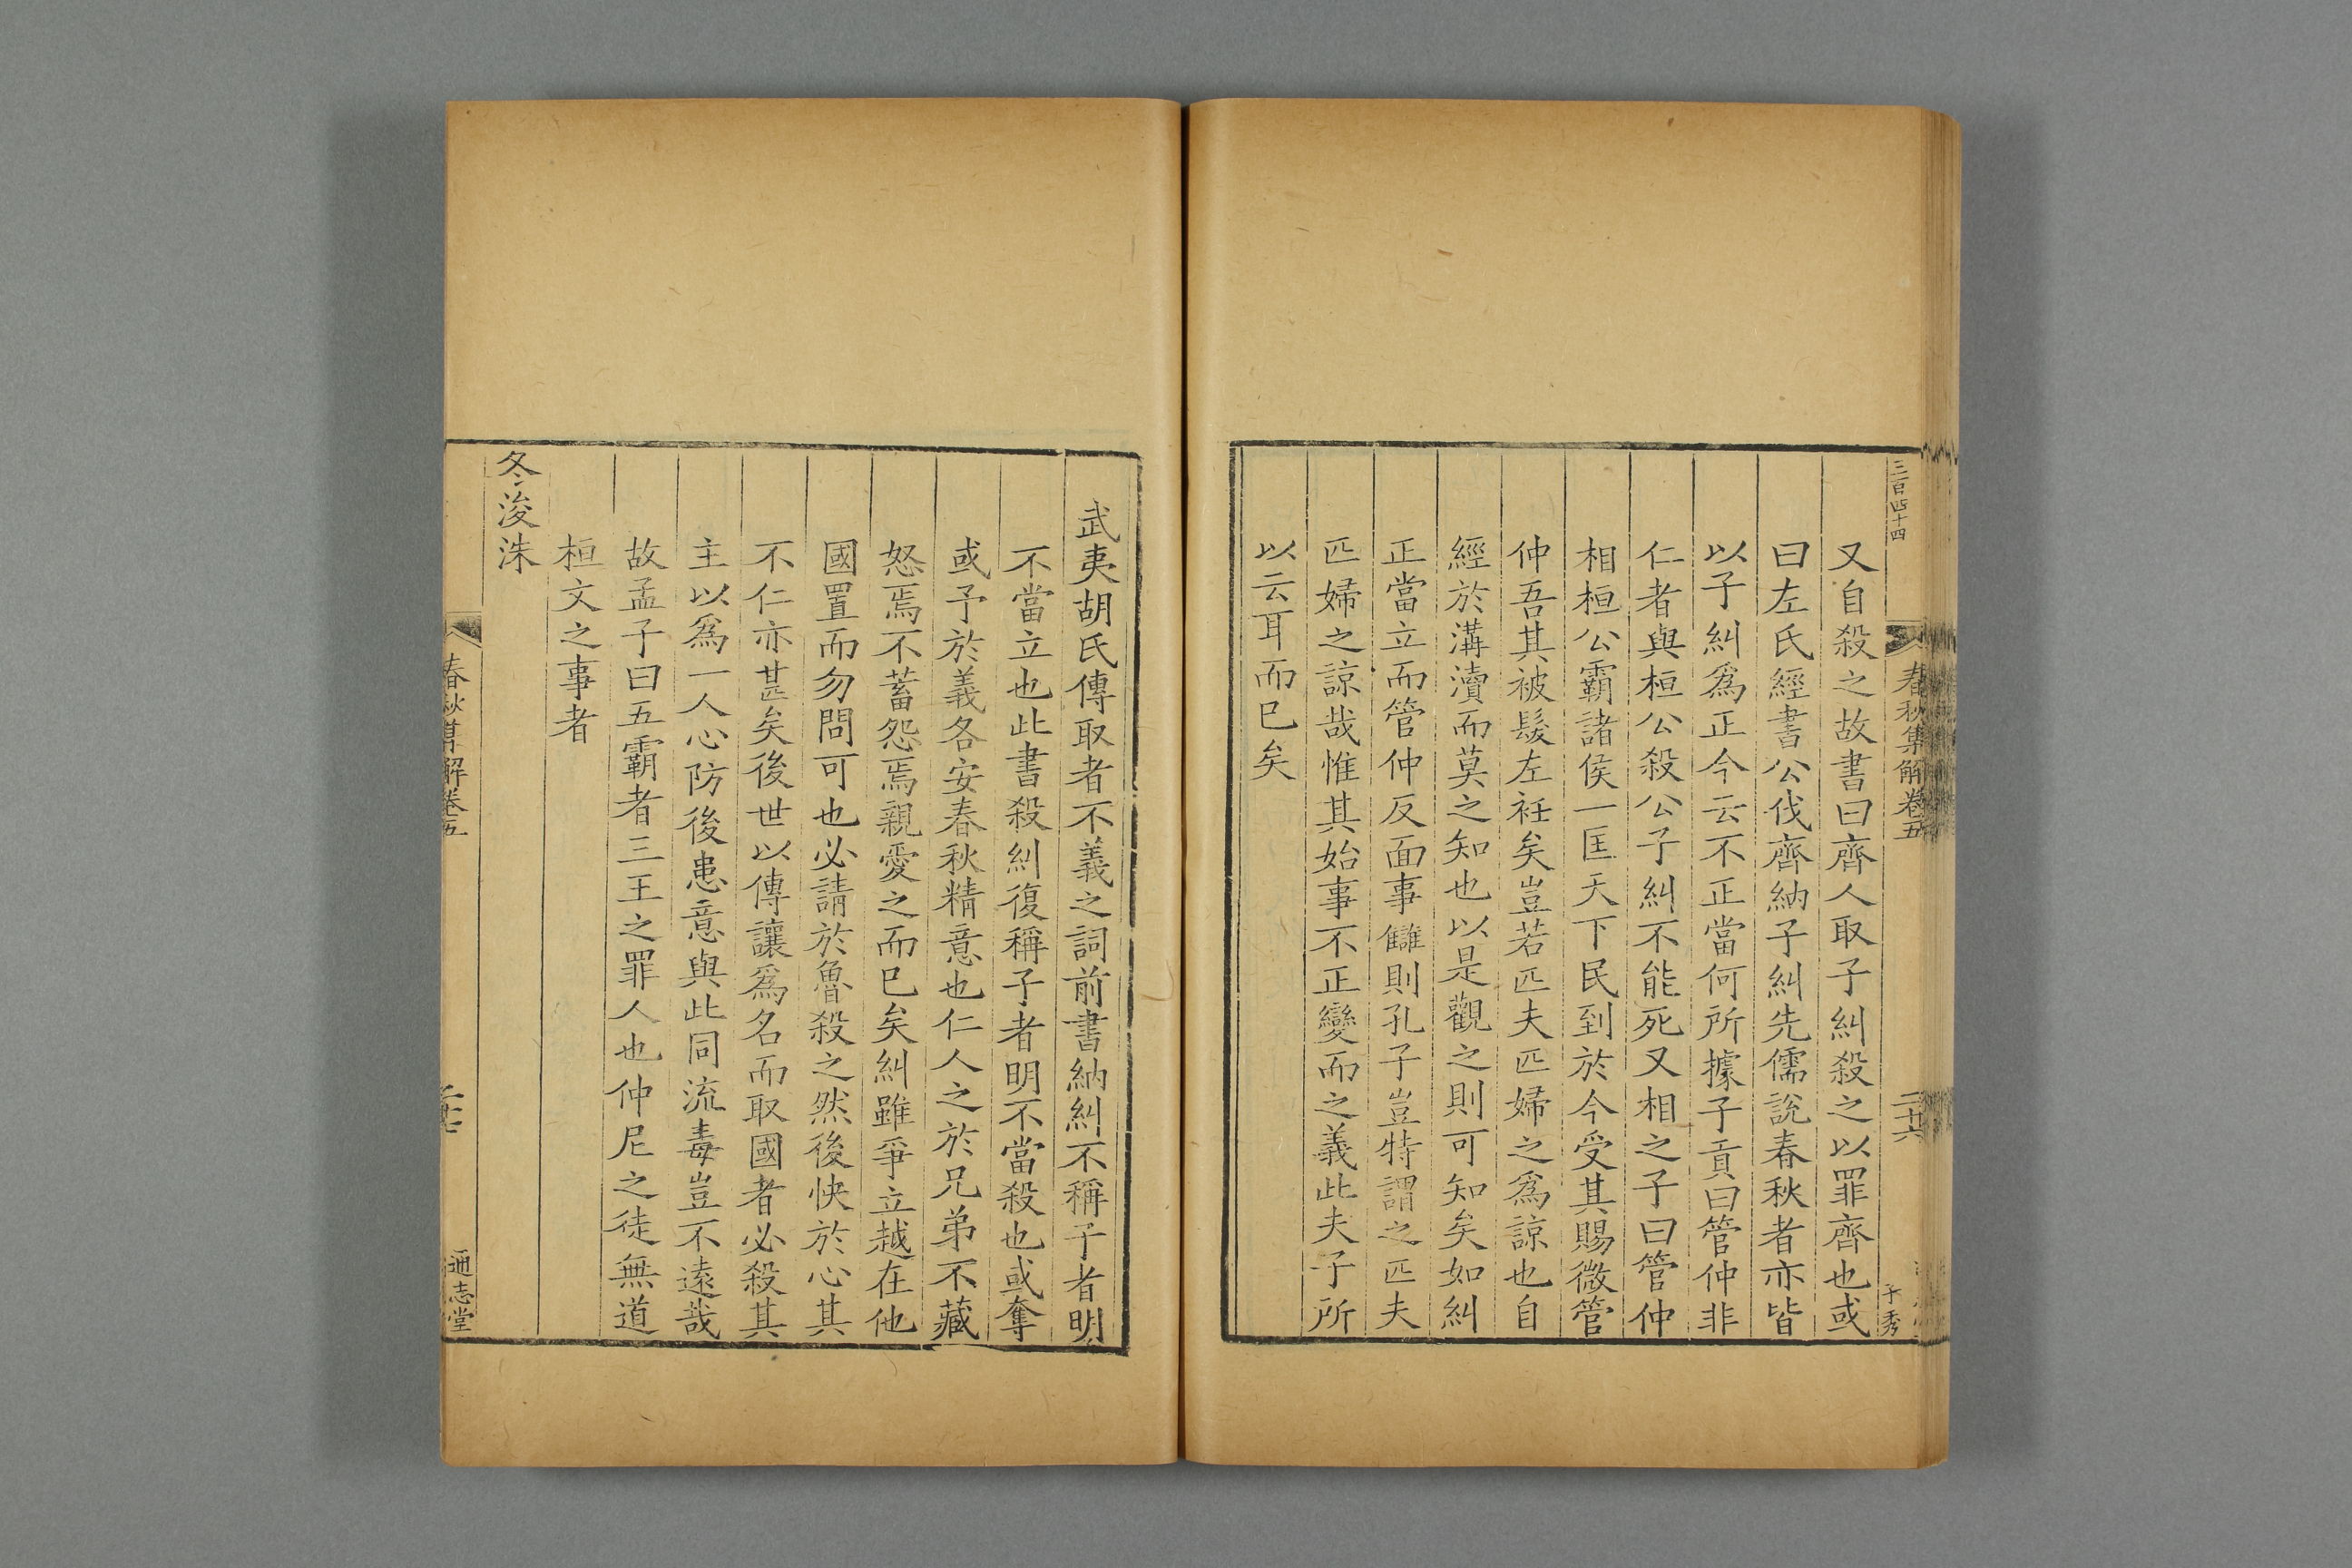 三百四十四
春秋集解卷五
二十六
子秀
又自殺之故書曰齊人取子糾殺之以罪齊也或
曰左氏經書公伐齊納子糾先儒說春秋者亦皆
以子糾爲正今云不正當何所據子貢曰管仲非
仁者與桓公殺公子糾不能死又相之子曰管仲
相桓公霸諸侯一匡天下民到於今受其賜微管
仲吾其被髮左衽矣豈若匹夫匹婦之爲諒也自
經於溝瀆而莫之知也以是觀之則可知矣如糾
正當立而管仲反面事讎則孔子豈特謂之匹夫
匹婦之諒哉惟其始事不正變而之義此夫子所
以云耳而已矣
武夷胡氏傳取者不義之詞前書納糾不稱子者明
不當立也此書殺糾復稱子者明不當殺也或奪
或予於義各安春秋精意也仁人之於兄弟不藏
怒焉不蓄怨焉親愛之而已矣糾雖爭立越在他
國置而勿問可也必請於魯殺之然後快於心其
不仁亦甚矣後世以傳讓爲名而取國者必殺其
主以爲一人心防後患意與此同流毒豈不遠哉
故孟子曰五霸者三王之罪人也仲尼之徒無道
桓文之事者
冬浚洙
春秋集解卷五
通志堂